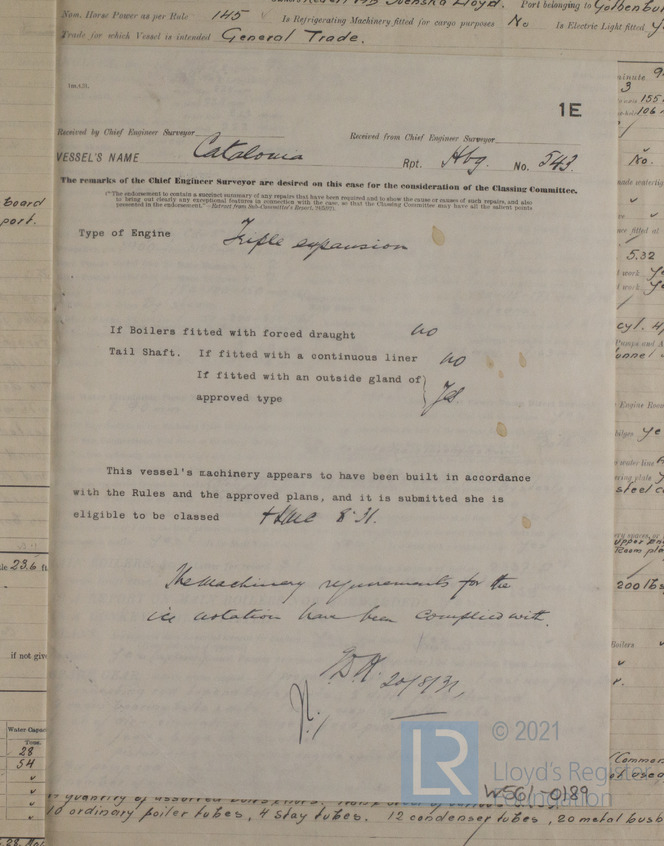 Nom. Horse Power as per Rule 145 Is Refrigerating Machinery fitted for cargo purposes No Is Electric Light fitted
Trade for which Vessel is intended General Trade.
1E
Received by Chief Engineer Surveyor Received from Chief Engineer Surveyor
VESSEL'S NAME Catalonia Rpt. Hbg. No. 543.
The remarks of the Chief Engineer Surveyor are desired on this case for the consideration of the Classing Committee.
("The endorsement to contain a succinct summary of any repairs that have been required and to show the cause or causes of such repairs, and also
to bring out clearly any exceptional features in connection with the case, so that the Classing Committee may have all the salient points
presented in the endorsement."—Extract from Sub-Committee's Report,
Type of Engine Triple expansion
If Boilers fitted with forced draught no
Tail Shaft. If fitted with a continuous liner no
If fitted with an outside gland of
approved type Yes
This vessel's machinery appears to have been built in accordance
with the Rules and the approved plans, and it is submitted she is
eligible to be classed +LMC 8.31.
The Machinery requirements for the
ice notation have been complied with.
20/8/31,
LR © 2021
Lloyd's Register
Foundation
W561-0189
10 ordinary boiler tubes, 4 stay tubes. 12 condenser tubes, 20 metal
board
port.
23.6 ft
if not
Water
Tons.
28
54
3
155
106
No.
5.32
cyl.
Engine Room
steel
upper
Room
200 lbs
Boilers